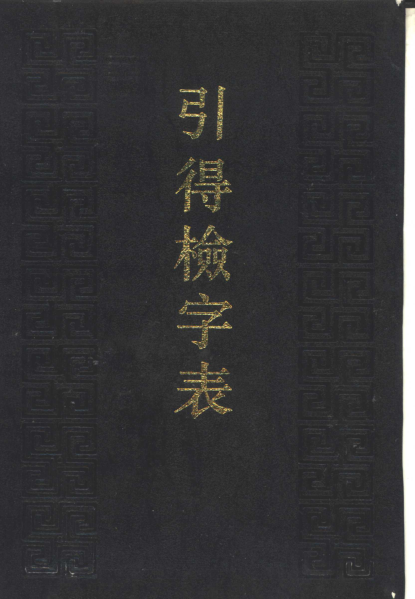 引得檢字表